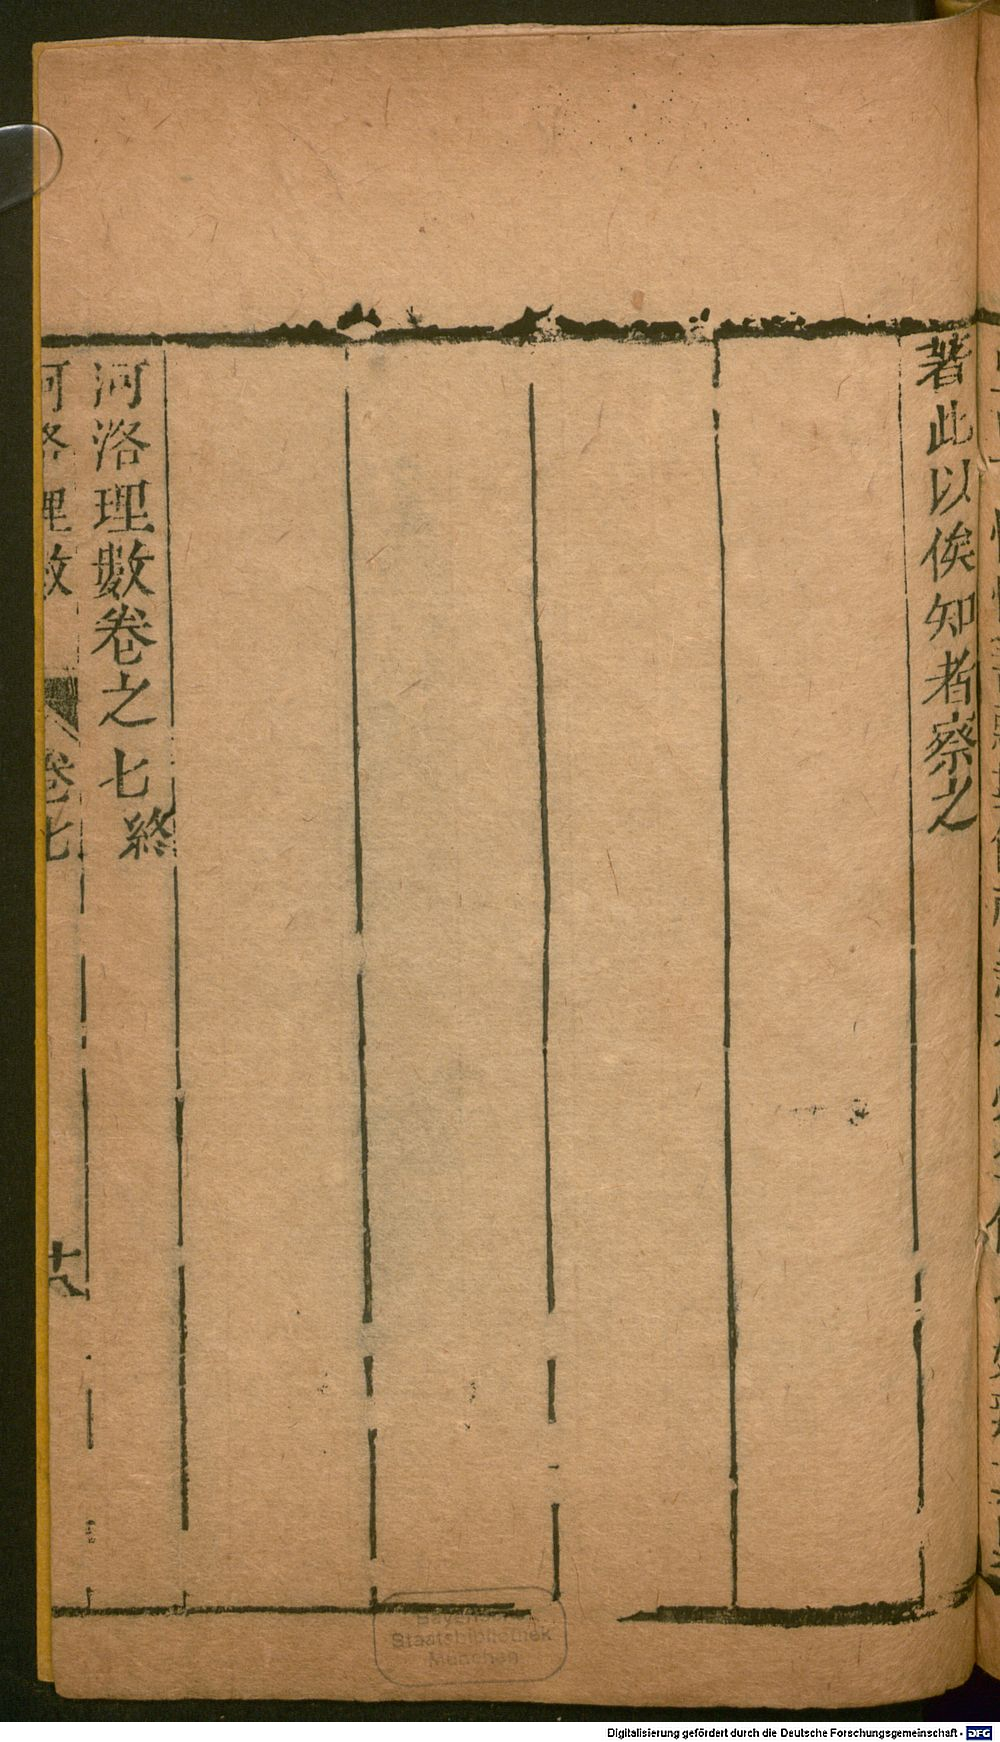 著此以俟知者察之
河洛理數卷之七終
河洛理數 卷七 十八
Bayerische
Staatsbibliothek
München
Digitalisierung gefördert durch die Deutsche Forschungsgemeinschaft - DFG